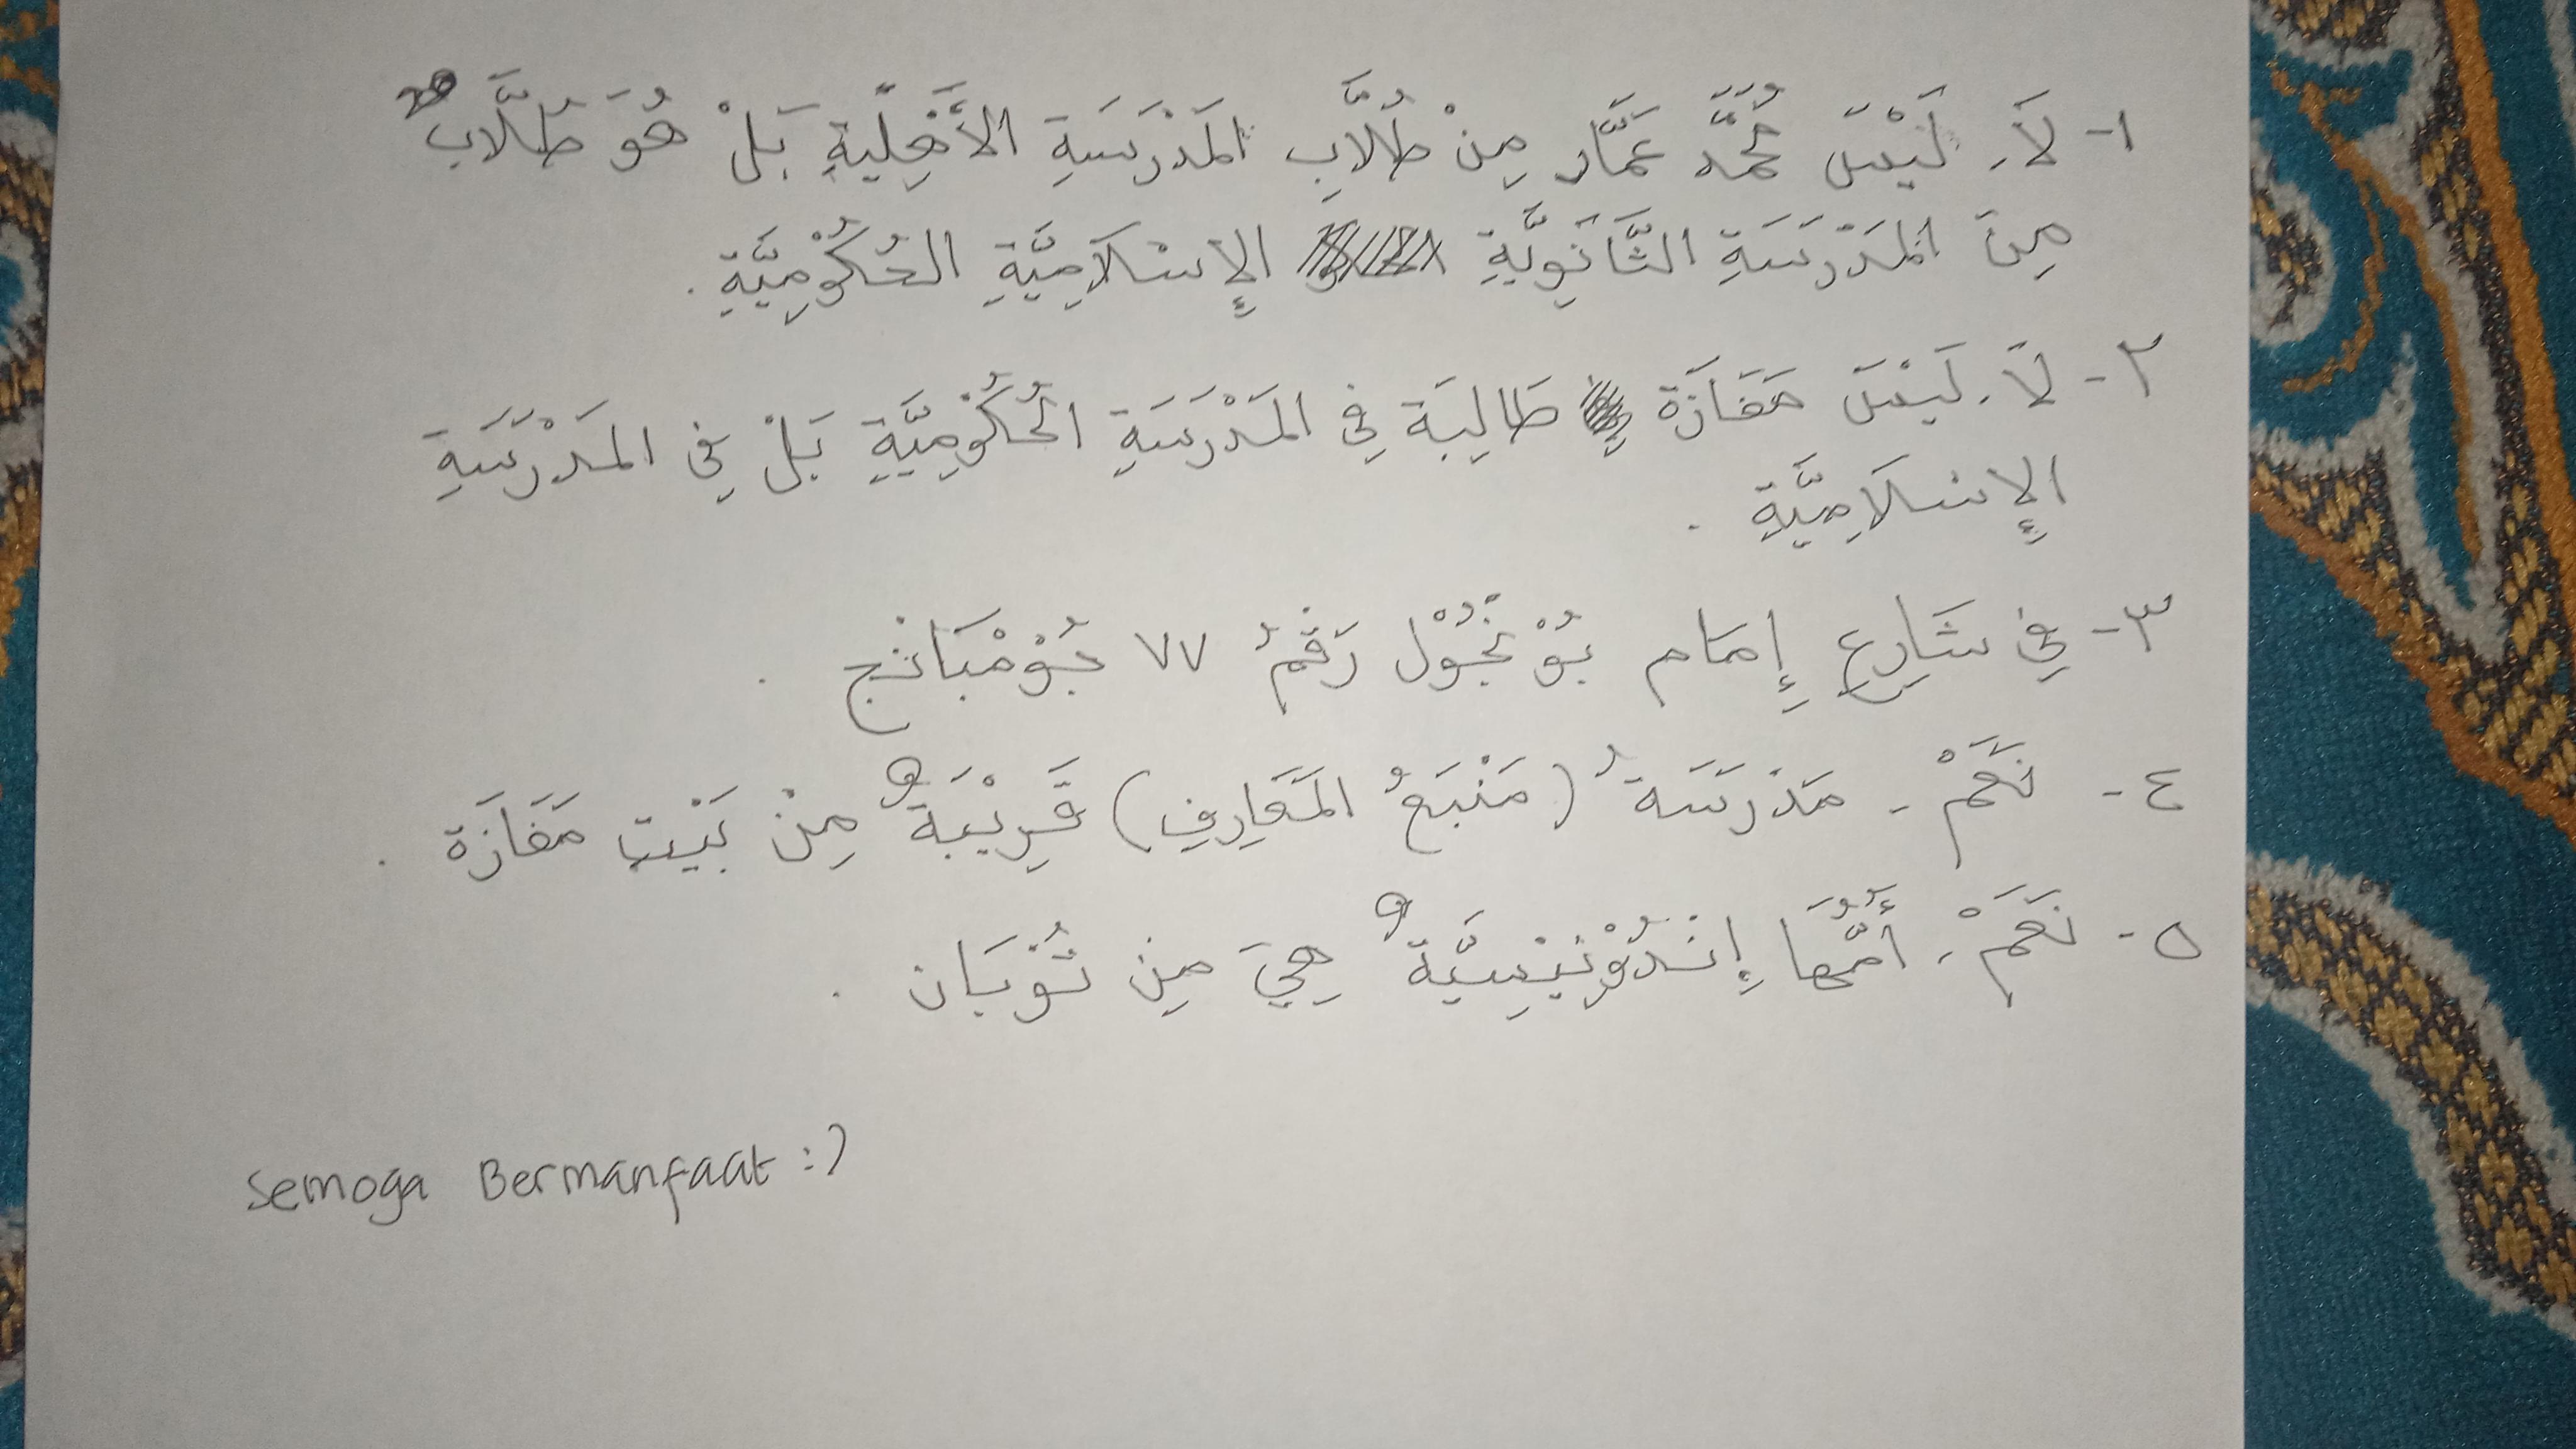 ١- لَا. لَيْسَ مُحَمَّد عَمَّار مِنْ طُلَّابِ المَدْرَسَةِ الأَهْلِيَّةِ بَلْ هُوَ طَلَّاب
مِنَ المَدْرَسَةِ الثَّانَوِيَّةِ الإِسْلَامِيَّةِ الحُكُوْمِيَّةِ.
٢- لَا. لَيْسَ مَفَازَة طَالِبَة فِي المَدْرَسَةِ الحُكُوْمِيَّةِ بَلْ فِي المَدْرَسَةِ
الإِسْلَامِيَّةِ.
٣- فِي شَارِعِ إِمَام بُوْنْجُوْل رَقْمُ ٧٧ جُوْمْبَانْج.
٤- نَعَمْ. مَدْرَسَةُ (مَنْبَعُ المَعَارِفِ) قَرِيْبَةٌ مِنْ بَيْتِ مَفَازَة.
٥- نَعَمْ. أُمُّهَا إِنْدُوْنِيْسِيَّةٌ هِيَ مِن تُوْبَان.
Semoga Bermanfaat :)